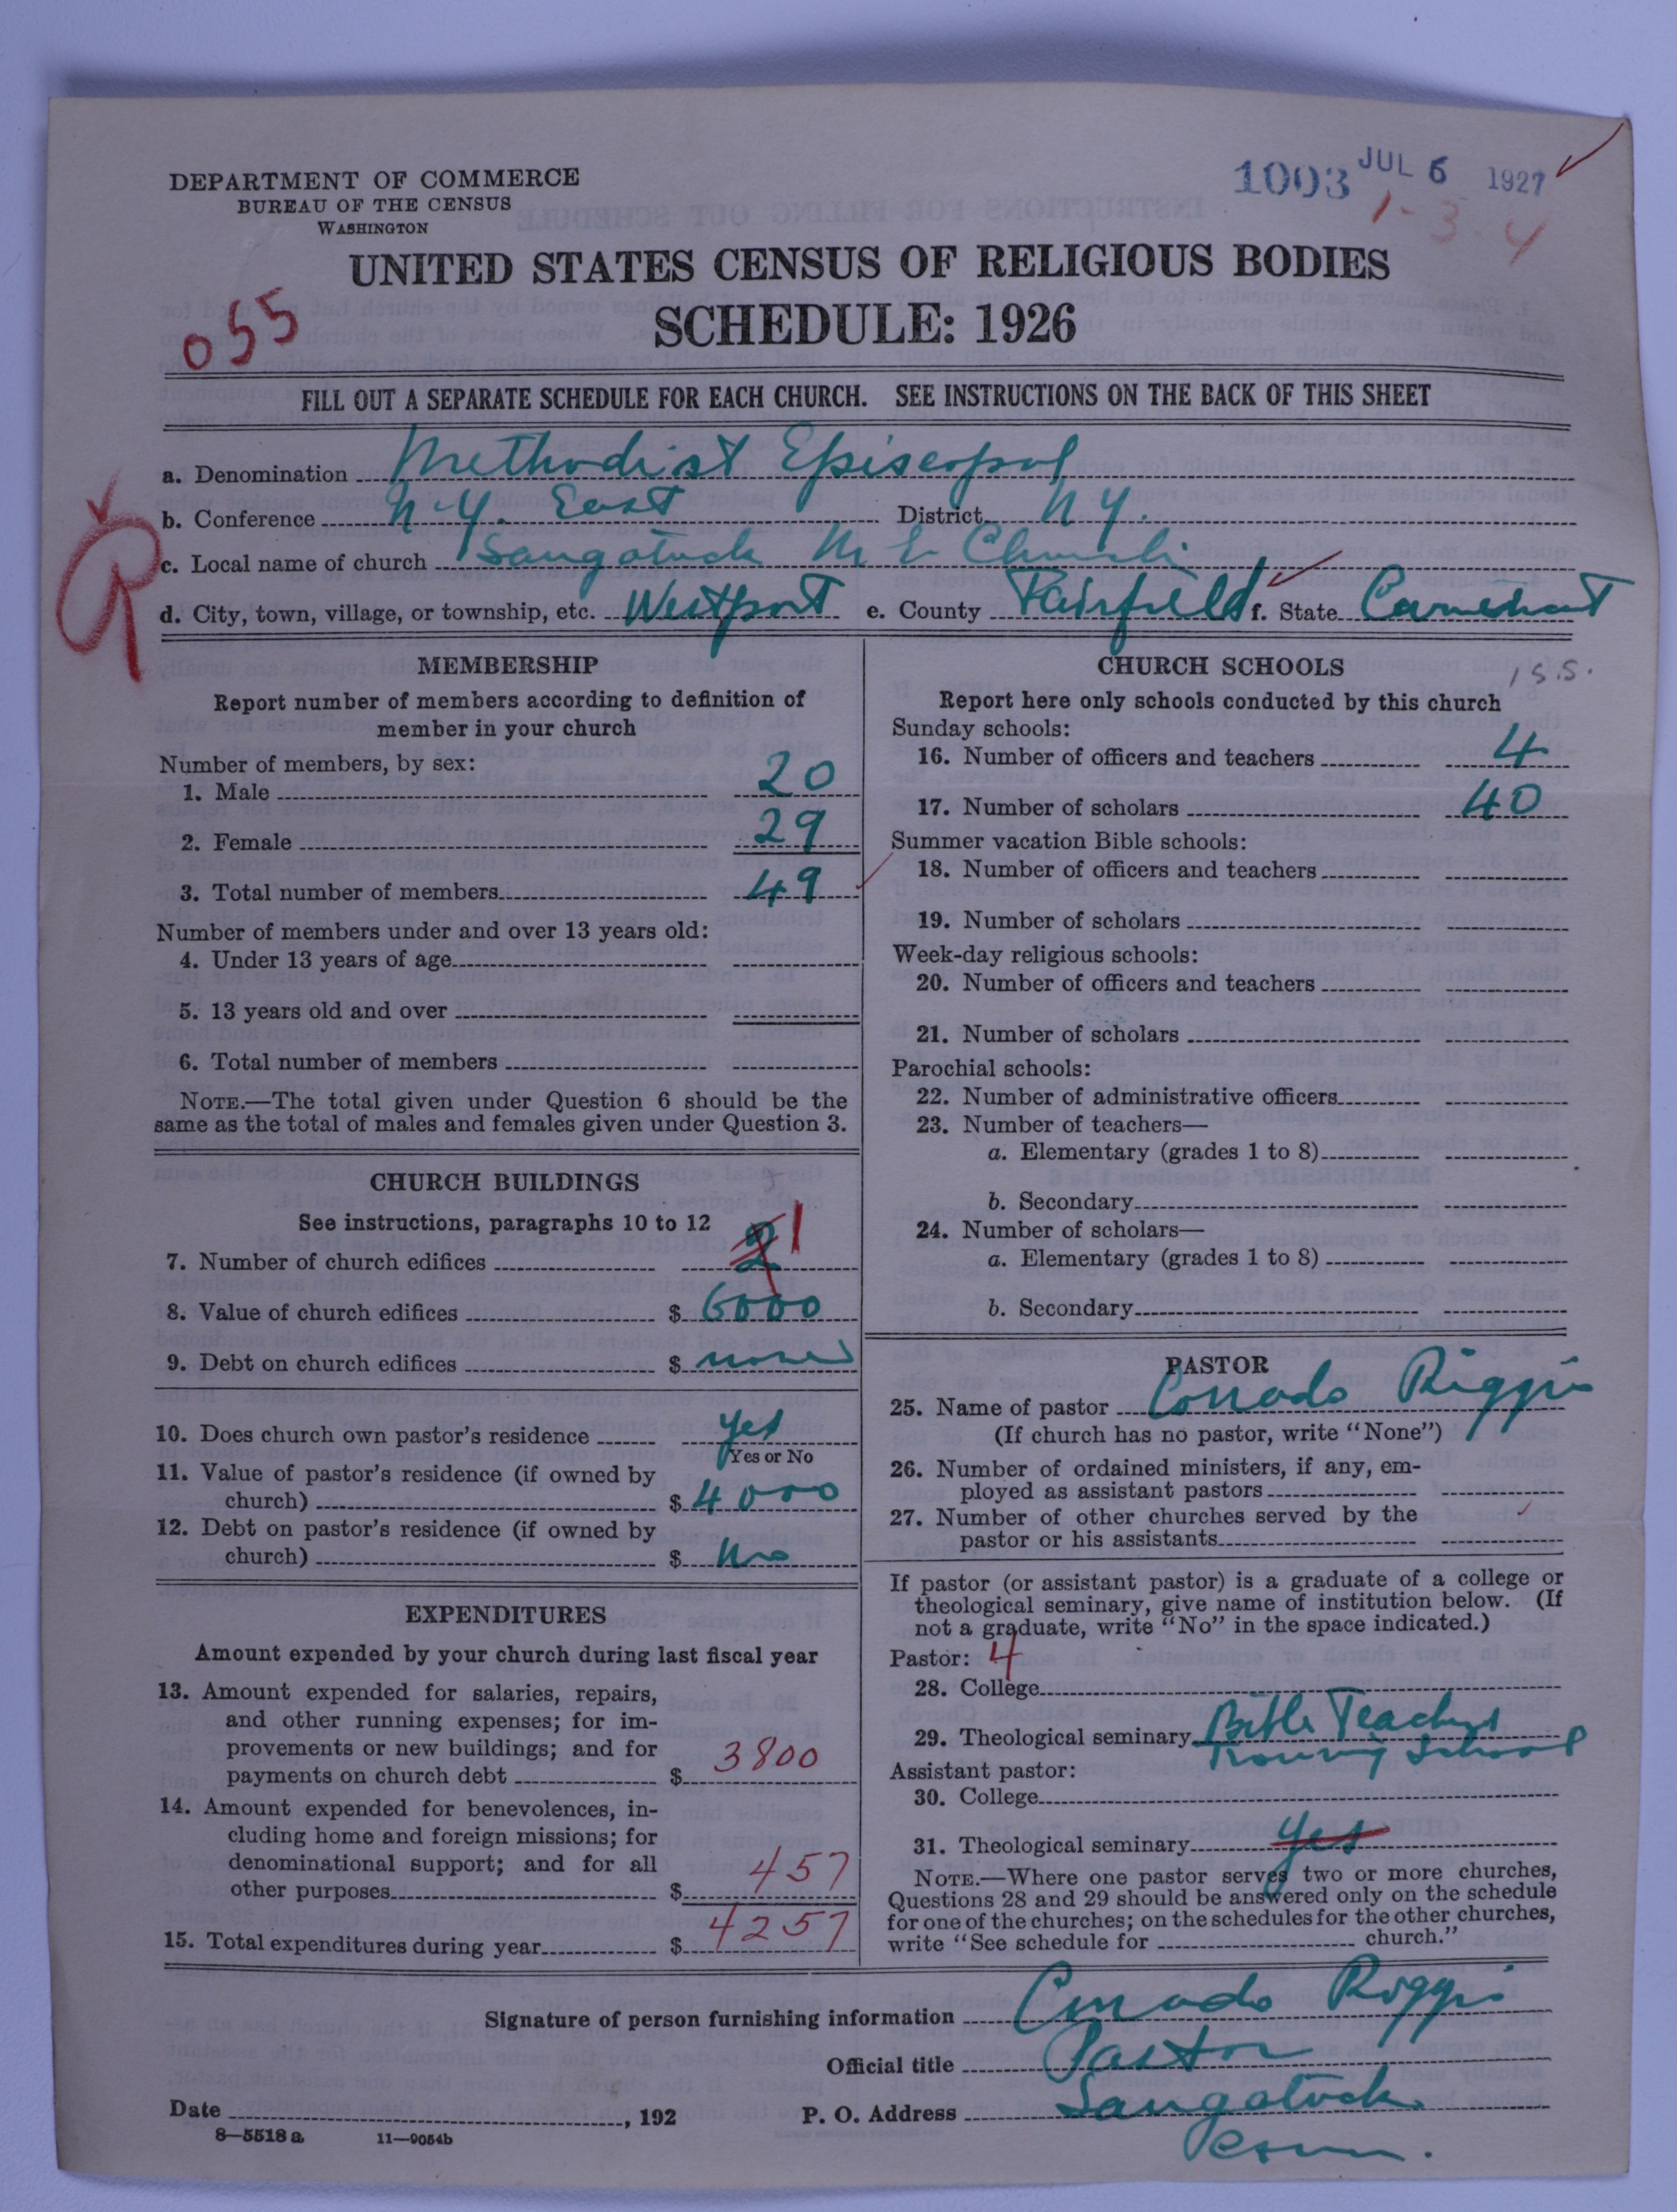 1003 JUL 6 1927
1-3-4
DEPARTMENT OF COMMERCE
BUREAU OF THE CENSUS
WASHINGTON
UNITED STATES CENSUS OF RELIGIOUS BODIES
SCHEDULE: 1926
055
FILL OUT A SEPARATE SCHEDULE FOR EACH CHURCH. SEE INSTRUCTIONS ON THE BACK OF THIS SHEET
a. Denomination Methodist Episcopal
b. Conference N.Y. East District N Y.
c. Local name of church Saugatuck M E Church
d. City, town, village, or township, etc. Westport e. County Fairfield f. State Connecticut
MEMBERSHIP
Report number of members according to definition of
member in your church
Number of members, by sex:
1. Male 20
2. Female 29
3. Total number of members 49
Number of members under and over 13 years old:
4. Under 13 years of age
5. 13 years old and over
6. Total number of members
NOTE.—The total given under Question 6 should be the
same as the total of males and females given under Question 3.
CHURCH BUILDINGS
See instructions, paragraphs 10 to 12
7. Number of church edifices 2 1
8. Value of church edifices $ 6000
9. Debt on church edifices $ none
10. Does church own pastor's residence yes
Yes or No
11. Value of pastor's residence (if owned by
church) $ 4000
12. Debt on pastor's residence (if owned by
church) $ no
EXPENDITURES
Amount expended by your church during last fiscal year
13. Amount expended for salaries, repairs,
and other running expenses; for im-
provements or new buildings; and for
payments on church debt $ 3800
14. Amount expended for benevolences, in-
cluding home and foreign missions; for
denominational support; and for all
other purposes $ 457
15. Total expenditures during year $ 4257
CHURCH SCHOOLS
1 S.S.
Report here only schools conducted by this church
Sunday schools:
16. Number of officers and teachers 4
17. Number of scholars 40
Summer vacation Bible schools:
18. Number of officers and teachers
19. Number of scholars
Week-day religious schools:
20. Number of officers and teachers
21. Number of scholars
Parochial schools:
22. Number of administrative officers
23. Number of teachers—
a. Elementary (grades 1 to 8)
b. Secondary
24. Number of scholars—
a. Elementary (grades 1 to 8)
b. Secondary
PASTOR
25. Name of pastor Corrado Riggio
(If church has no pastor, write "None")
26. Number of ordained ministers, if any, em-
ployed as assistant pastors
27. Number of other churches served by the
pastor or his assistants
If pastor (or assistant pastor) is a graduate of a college or
theological seminary, give name of institution below. (If
not a graduate, write "No" in the space indicated.)
Pastor: 4
28. College
29. Theological seminary Bible Teachers
Training School
Assistant pastor:
30. College
31. Theological seminary yes
NOTE.—Where one pastor serves two or more churches,
Questions 28 and 29 should be answered only on the schedule
for one of the churches; on the schedules for the other churches,
write "See schedule for church."
Signature of person furnishing information Corrado Riggio
Official title Pastor
Date , 192 P. O. Address Saugatuck
Conn.
8—5518 a 11—9054b